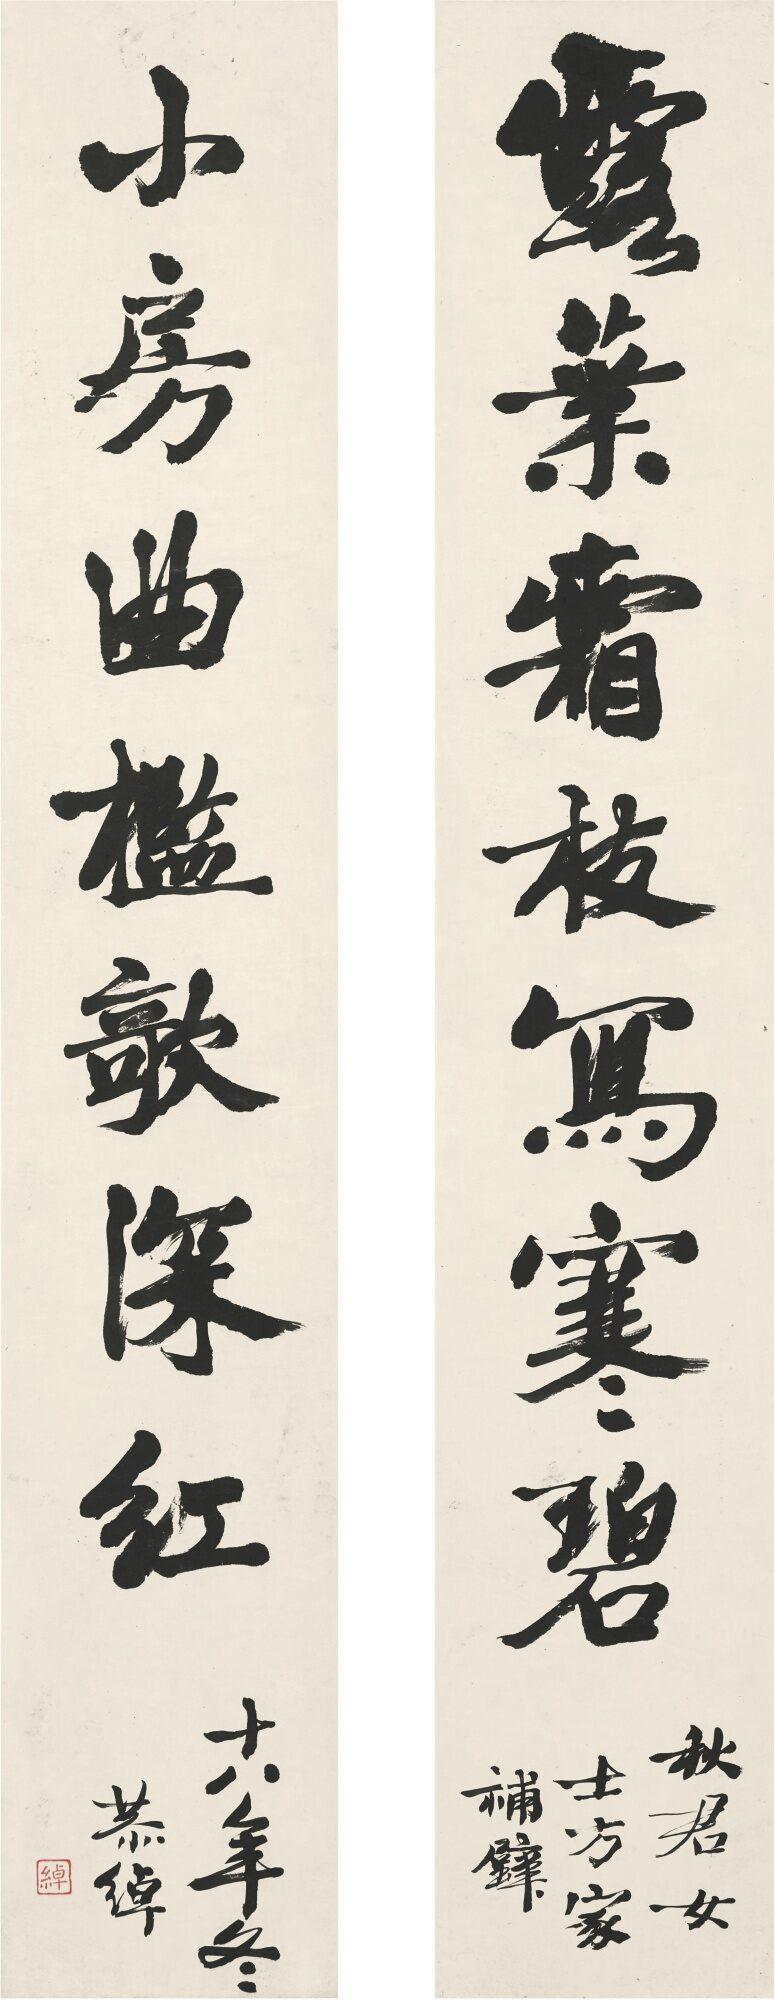 露葉霜枝寫寒碧
秋君女
士方家
補壁
小房曲檻歌深紅
十八年冬
恭綽
綽